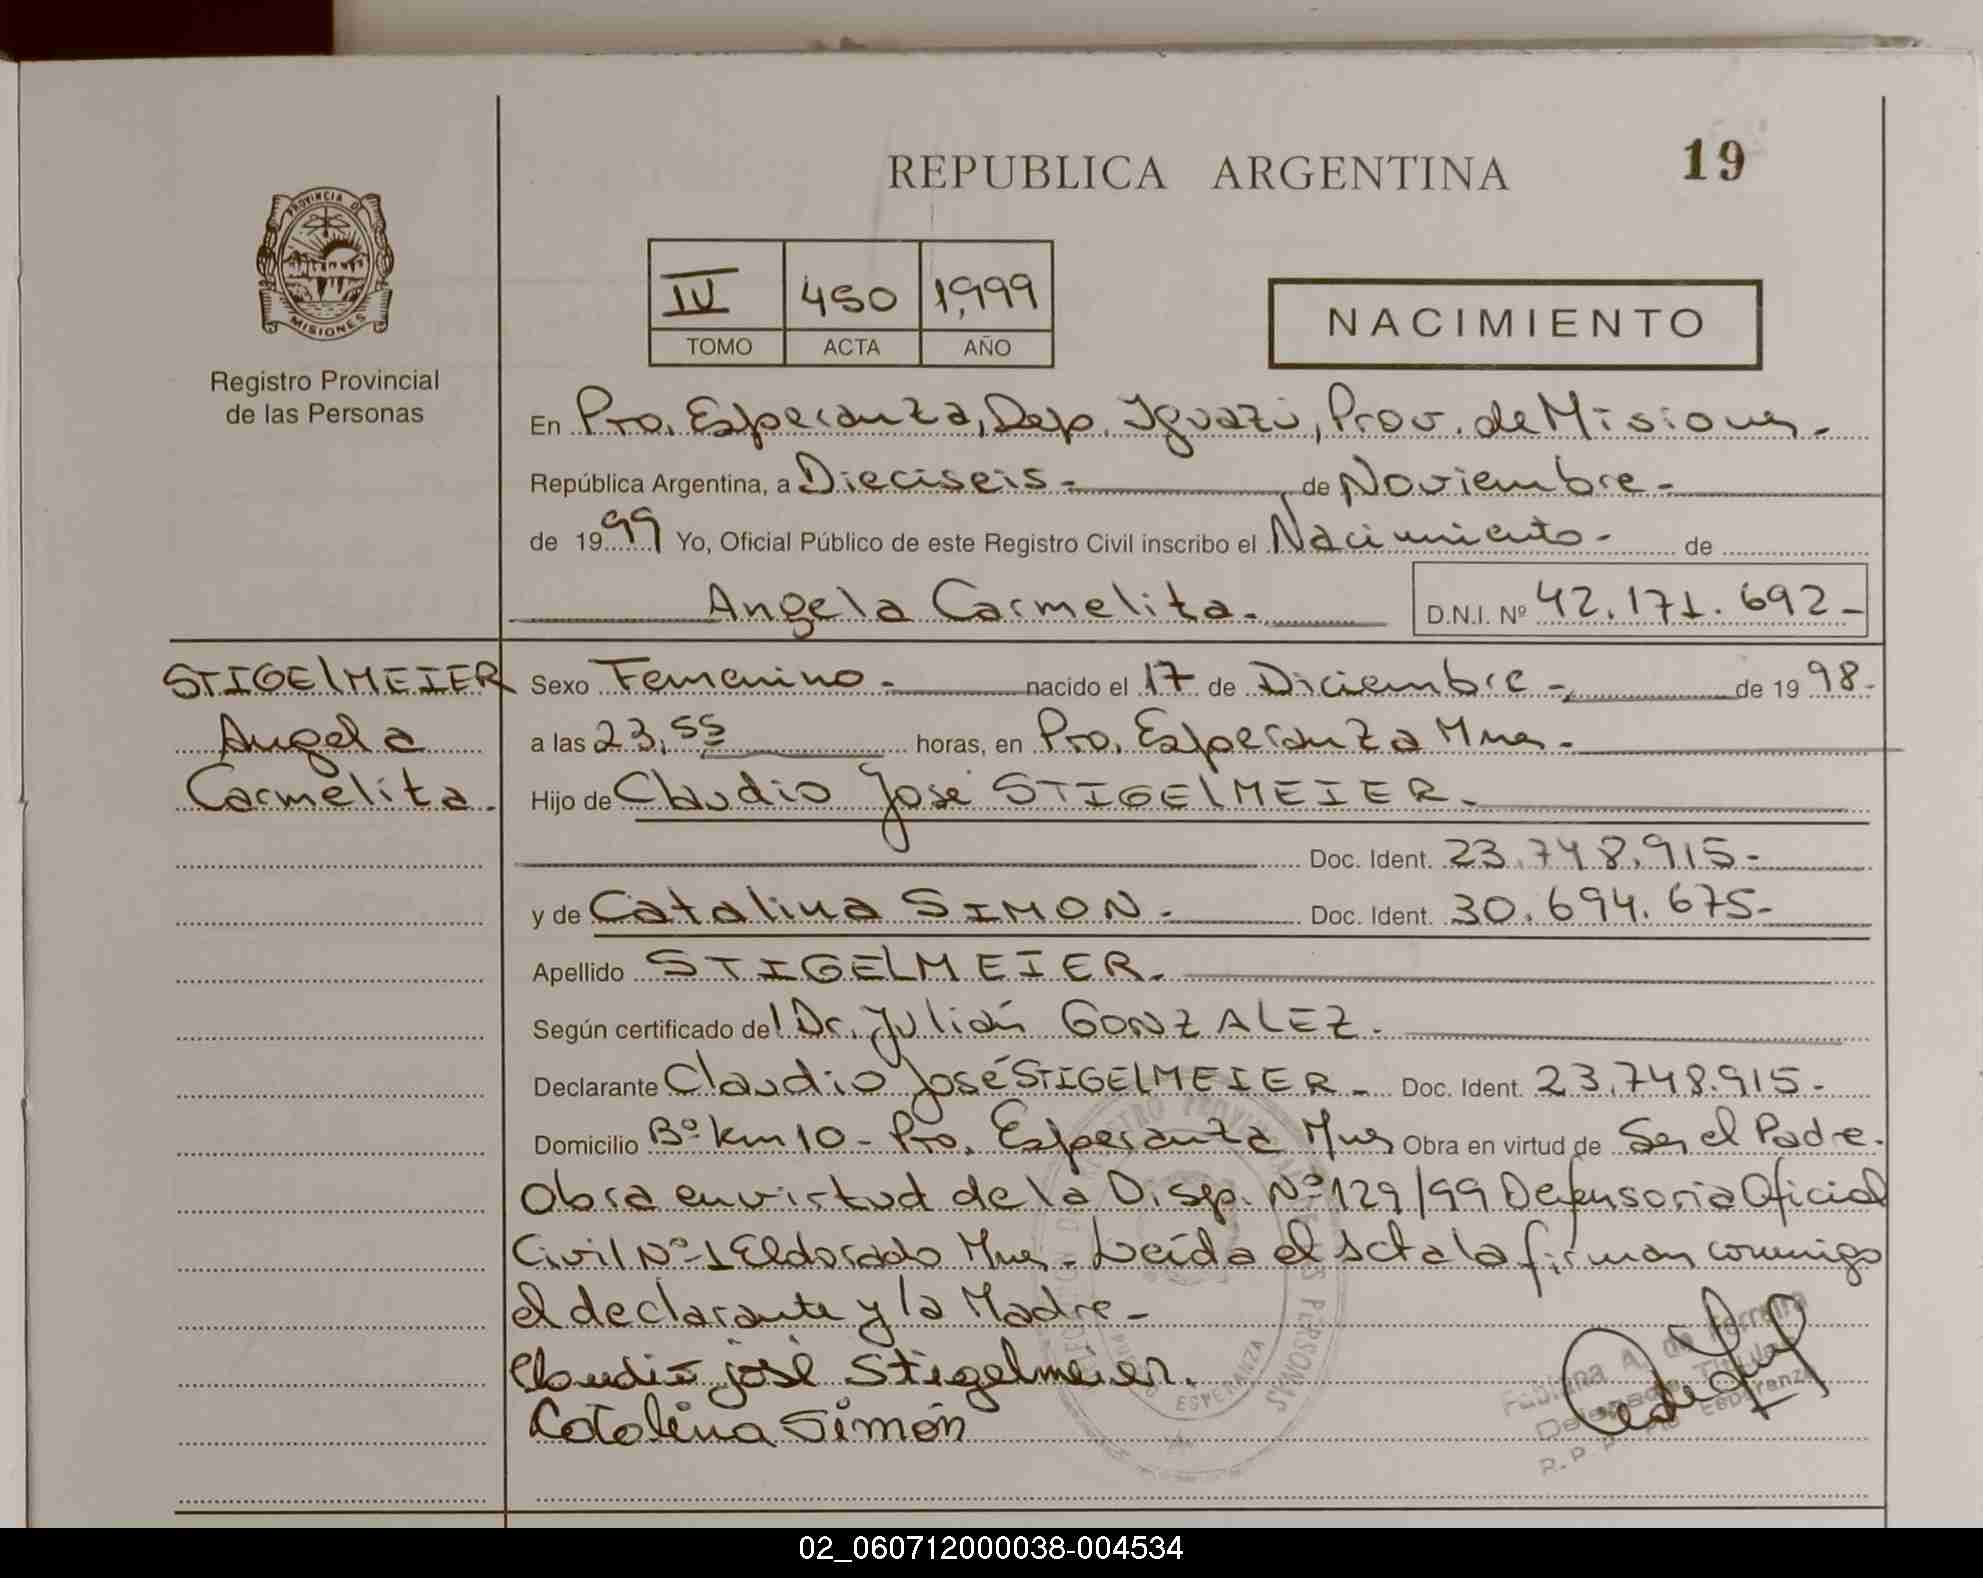 REPUBLICA ARGENTINA
19
PROVINCIA DE
MISIONES
Registro Provincial
de las Personas
IV 450 1,999
TOMO ACTA AÑO
NACIMIENTO
En Pto. Esperanza, Dep. Iguazú, Prov. de Misiones.-
República Argentina, a Dieciseis.- de Noviembre.-
de 1999 Yo, Oficial Público de este Registro Civil inscribo el Nacimiento.- de
Angela Carmelita.-
D.N.I. Nº 42.171.692-
STIGElMEIER
Angela
Carmelita.
Sexo Femenino.- nacido el 17 de Diciembre.- de 1998.-
a las 23,55 horas, en Pto. Esperanza Mnes.-
Hijo de Claudio José STIGElMEIER.-
Doc. Ident. 23.748.915.-
y de Catalina SIMON.- Doc. Ident. 30.694.675-
Apellido STIGELMEIER.-
Según certificado del Dr. Julián GONZALEZ.-
Declarante Claudio José STIGElMEIER.- Doc. Ident. 23.748.915.-
Domicilio Bº km 10 - Pto. Esperanza Mnes Obra en virtud de Ser el Padre.
Obra en virtud de la Disp. Nº 129/99 Defensoria Oficial
Civil Nº-1 Eldorado Mnes.- Leída el acta la firman conmigo
el declarante y la Madre-
Claudio josé Stigelmeier.
Catalina Simón
REGISTRO PROVINCIAL DE LAS PERSONAS
ESPERANZA
Fabiana A. de Ferreira
Delegada Titular
R.P.P. Pto Esperanza
02_060712000038-004534